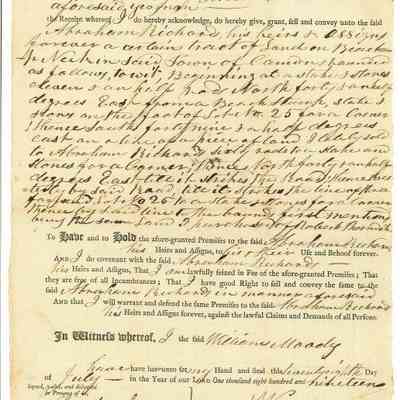 aforesaid yeoman
the Receipt whereof I do hereby acknowledge, do hereby give, grant, sell and convey unto the said
Abraham Richard, his heirs & Assigns
forever a certain tract of Land on Beach
Neck in said Town of Camden bounded
as follows, to wit, Beginning at a stake & stones
eleven & an half rod North forty & an half
degrees East from a Beach Stump, stake &
stones on the foot of Lot No. 25 for a Corner
thence South forty nine & a half degrees
east on a line of a piece of land I lately sold
to Abraham Richard sixty rods to a stake and
stones for a Corner, thence North forty & an half
degrees East till it strikes the Road thence
by said Road, till it strikes the line of
Lot No 25 to a stake & stones for a Corner
thence by said line to the bounds first mention
being the same land I purchased of
To Have and to Hold the afore-granted Premises to the said Abraham Richard
his Heirs and Assigns, to his & their Use and Behoof forever.
AND I do covenant with the said Abraham Richards
his Heirs and Assigns, That I am lawfully seized in Fee of the afore-granted Premises; That
they are free of all Incumbrances; That I have good Right to sell and convey the same to the
said Abraham Richard in manner aforesaid
And that I will warrant and defend the same Premises to the said Abraham Richard
his Heirs and Assigns forever, against the lawful Claims and Demands of all Persons.
In Witness whereof, I the said William Moody
have hereunto set my Hand and Seal this twenty sixth Day
of July in the Year of our LORD One thousand eight hundred and nineteen
Signed, sealed, and delivered
in Presence of us